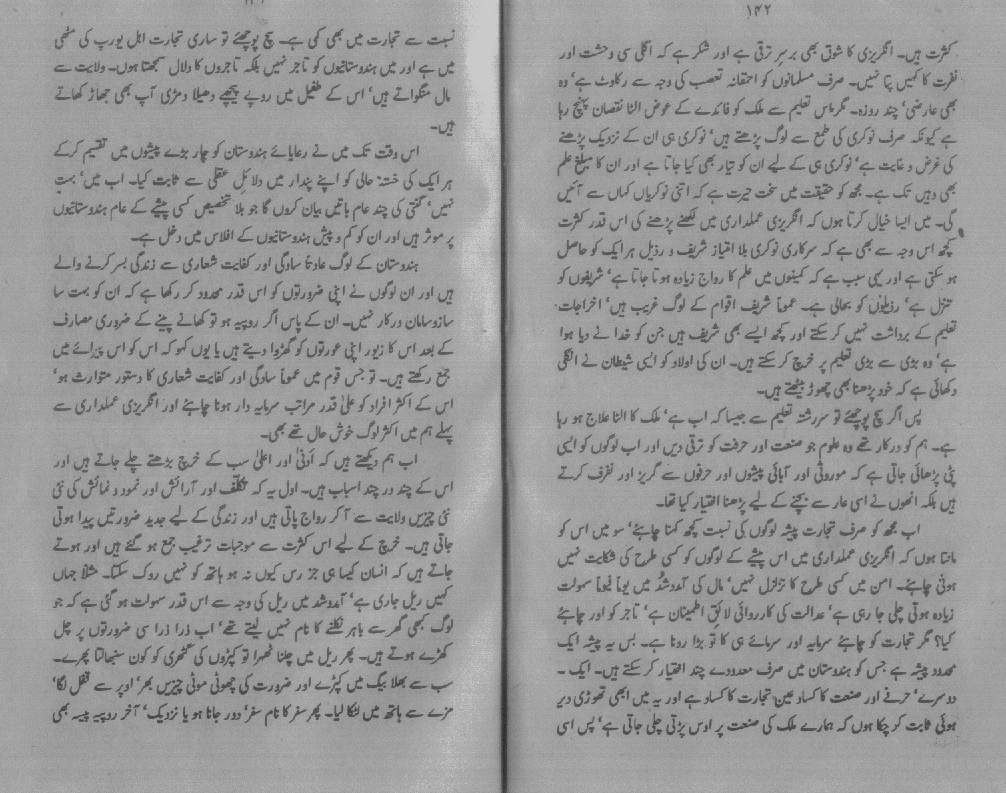 ۱۴۲
کثرت ہیں۔ انگریزی کا شوق بھی برسر ترقی ہے اور شکر ہے کہ اگلی سی وحشت اور
نفرت کا کہیں پتا نہیں۔ صرف مسلمانوں کو احمقانہ تعصب کی وجہ سے رکاوٹ ہے‘ وہ
بھی عارضی‘ چند روزہ۔ مگر ماس تعلیم سے ملک کو فائدے کے عوض الٹا نقصان پہنچ رہا
ہے کیونکہ صرف نوکری کی طمع سے لوگ پڑھتے ہیں‘ نوکری ہی ان کے نزدیک پڑھنے
کی غرض و غایت ہے‘ نوکری ہی کے لیے ان کو تیار بھی کیا جاتا ہے اور ان کا مبلغ علم
بھی وہیں تک ہے۔ مجھ کو حقیقت میں سخت حیرت ہے کہ اتنی نوکریاں کہاں سے آئیں
گی۔ میں ایسا خیال کرتا ہوں کہ انگریزی عملداری میں لکھنے پڑھنے کی اس قدر کثرت
کچھ اس وجہ سے بھی ہے کہ سرکاری نوکری بلا امتیاز شریف و رذیل ہر ایک کو حاصل
ہو سکتی ہے اور یہی سبب ہے کہ کمینوں میں علم کا رواج زیادہ ہوتا جاتا ہے‘ شریفوں کو
تنزل ہے‘ رذیلوں کو بحالی ہے۔ عموماً شریف اقوام کے لوگ غریب ہیں‘ اخراجات
تعلیم کے برداشت نہیں کر سکتے اور کچھ ایسے بھی شریف ہیں جن کو خدا نے دیا ہوا
ہے‘ وہ بڑی سے بڑی تعلیم پر خرچ کر سکتے ہیں۔ ان کی اولاد کو ایسی شیطان نے انگلی
دکھائی ہے کہ خود پڑھنا بھی چھوڑ بیٹھتے ہیں۔
پس اگر سچ پوچھئے تو سررشتہ تعلیم سے جیسا کہ اب ہے‘ ملک کا الٹا علاج ہو رہا
ہے۔ ہم کو درکار تھے وہ علوم جو صنعت اور حرفت کو ترقی دیں اور اب لوگوں کو ایسی
پٹی پڑھائی جاتی ہے کہ موروثی اور آبائی پیشوں اور حرفوں سے گریز اور نفرف کرتے
ہیں بلکہ انھوں نے اسی عار سے بچنے کے لیے پڑھنا اختیار کیا تھا۔
اب مجھ کو صرف تجارت پیشہ لوگوں کی نسبت کچھ کہنا چاہئے‘ سو میں اس کو
مانتا ہوں کہ انگریزی عملداری میں اس پیشے کے لوگوں کو کسی طرح کی شکایت نہیں
ہونی چاہئے۔ امن میں کسی طرح کا تزلزل نہیں‘ مال کی آمدوشد میں یوماً فیوماً سہولت
زیادہ ہوتی چلی جا رہی ہے‘ عدالت کی کارروائی لائق اطمینان ہے‘ تاجر کو اور چاہئے
کیا؟ مگر تجارت کو چاہئے سرمایہ اور سرمائے ہی کا تو بڑا رونا ہے۔ بس یہ پیشہ ایک
محدود پیشہ ہے جس کو ہندوستان میں صرف معدودے چند اختیار کر سکتے ہیں۔ ایک۔
دوسرے‘ حرفے اور صنعت کا کساد عین تجارت کا کساد ہے اور یہ میں ابھی تھوڑی دیر
ہوئی ثابت کر چکا ہوں کہ ہمارے ملک کی صنعت پر اوس پڑتی چلی جاتی ہے‘ پس اسی
نسبت سے تجارت میں بھی کمی ہے۔ سچ پوچھئے تو ساری تجارت اہل یورپ کی مٹھی
میں ہے اور میں ہندوستانیوں کو تاجر نہیں بلکہ تاجروں کا دلال سمجھتا ہوں۔ ولایت سے
مال منگواتے ہیں‘ اس کے طفیل میں روپے پیچھے دھیلا دمڑی آپ بھی جھاڑ کھاتے
ہیں۔
اس وقت تک میں نے رعایائے ہندوستان کو چار بڑے پیشوں میں تقسیم کرکے
ہر ایک کی خستہ حالی کو اپنے پندار میں دلائل عقلی سے ثابت کیا۔ اب میں‘ بہت
نہیں‘ گنتی کی چند عام باتیں بیان کروں گا جو بلا تخصیص کسی پیشے کے عام ہندوستانیوں
پر موثر ہیں اور ان کو کم و پیش ہندوستانیوں کے افلاس میں دخل ہے۔
ہندوستان کے لوگ عادتاً سادگی اور کفایت شعاری سے زندگی بسر کرنے والے
ہیں اور ان لوگوں نے اپنی ضرورتوں کو اس قدر محدود کر رکھا ہے کہ ان کو بہت سا
سازوسامان درکار نہیں۔ ان کے پاس اگر روپیہ ہو تو کھانے پینے کے ضروری مصارف
کے بعد اس کا زیور اپنی عورتوں کو گھڑوا دیتے ہیں یا یوں کہو کہ اس کو اس پیرائے میں
جمع رکھتے ہیں۔ تو جس قوم میں عموماً سادگی اور کفایت شعاری کا دستور متوارث ہو‘
اس کے اکثر افراد کو علیٰ قدر مراتب سرمایہ دار ہونا چاہئے اور انگریزی عملداری سے
پہلے ہم میں اکثر لوگ خوش حال تھے بھی۔
اب ہم دیکھتے ہیں کہ ادنیٰ اور اعلیٰ سب کے خرچ بڑھتے چلے جاتے ہیں اور
اس کے چند در چند اسباب ہیں۔ اول یہ کہ تکلف اور آرائش اور نمود و نمائش کی نئی
نئی چیزیں ولایت سے آ کر رواج پاتی ہیں اور زندگی کے لیے جدید ضرورتیں پیدا ہوتی
جاتی ہیں۔ خرچ کے لیے اس کثرت سے موجبات ترغیب جمع ہو گئے ہیں اور ہوتے
جاتے ہیں کہ انسان کیسا ہی جز رس کیوں نہ ہو ہاتھ کو نہیں روک سکتا۔ مثلاً جہاں
کہیں ریل جاری ہے‘ آمدوشد میں ریل کی وجہ سے اس قدر سہولت ہو گئی ہے کہ جو
لوگ کبھی گھر سے باہر نکلنے کا نام نہیں لیتے تھے‘ اب ذرا ذرا سی ضرورتوں پر چل
کھڑے ہوتے ہیں۔ پھر ریل میں چلنا ٹھہرا تو کپڑوں کی گٹھری کو کون سنبھالتا پھرے۔
سب سے بھلا بیگ میں کپڑے اور ضرورت کی چھوٹی موٹی چیزیں بھر‘ اوپر سے قفل لگا‘
مزے سے ہاتھ میں لٹکا لیا۔ پھر سفر کا نام سفر‘ دور جانا ہو یا نزدیک‘ آخر روپیہ پیسہ بھی